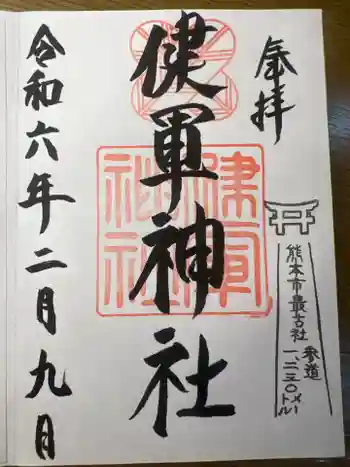 奉拝
健軍神社
令和六年二月九日
熊本市最古社
参道
一、二三〇メートル
健軍神社